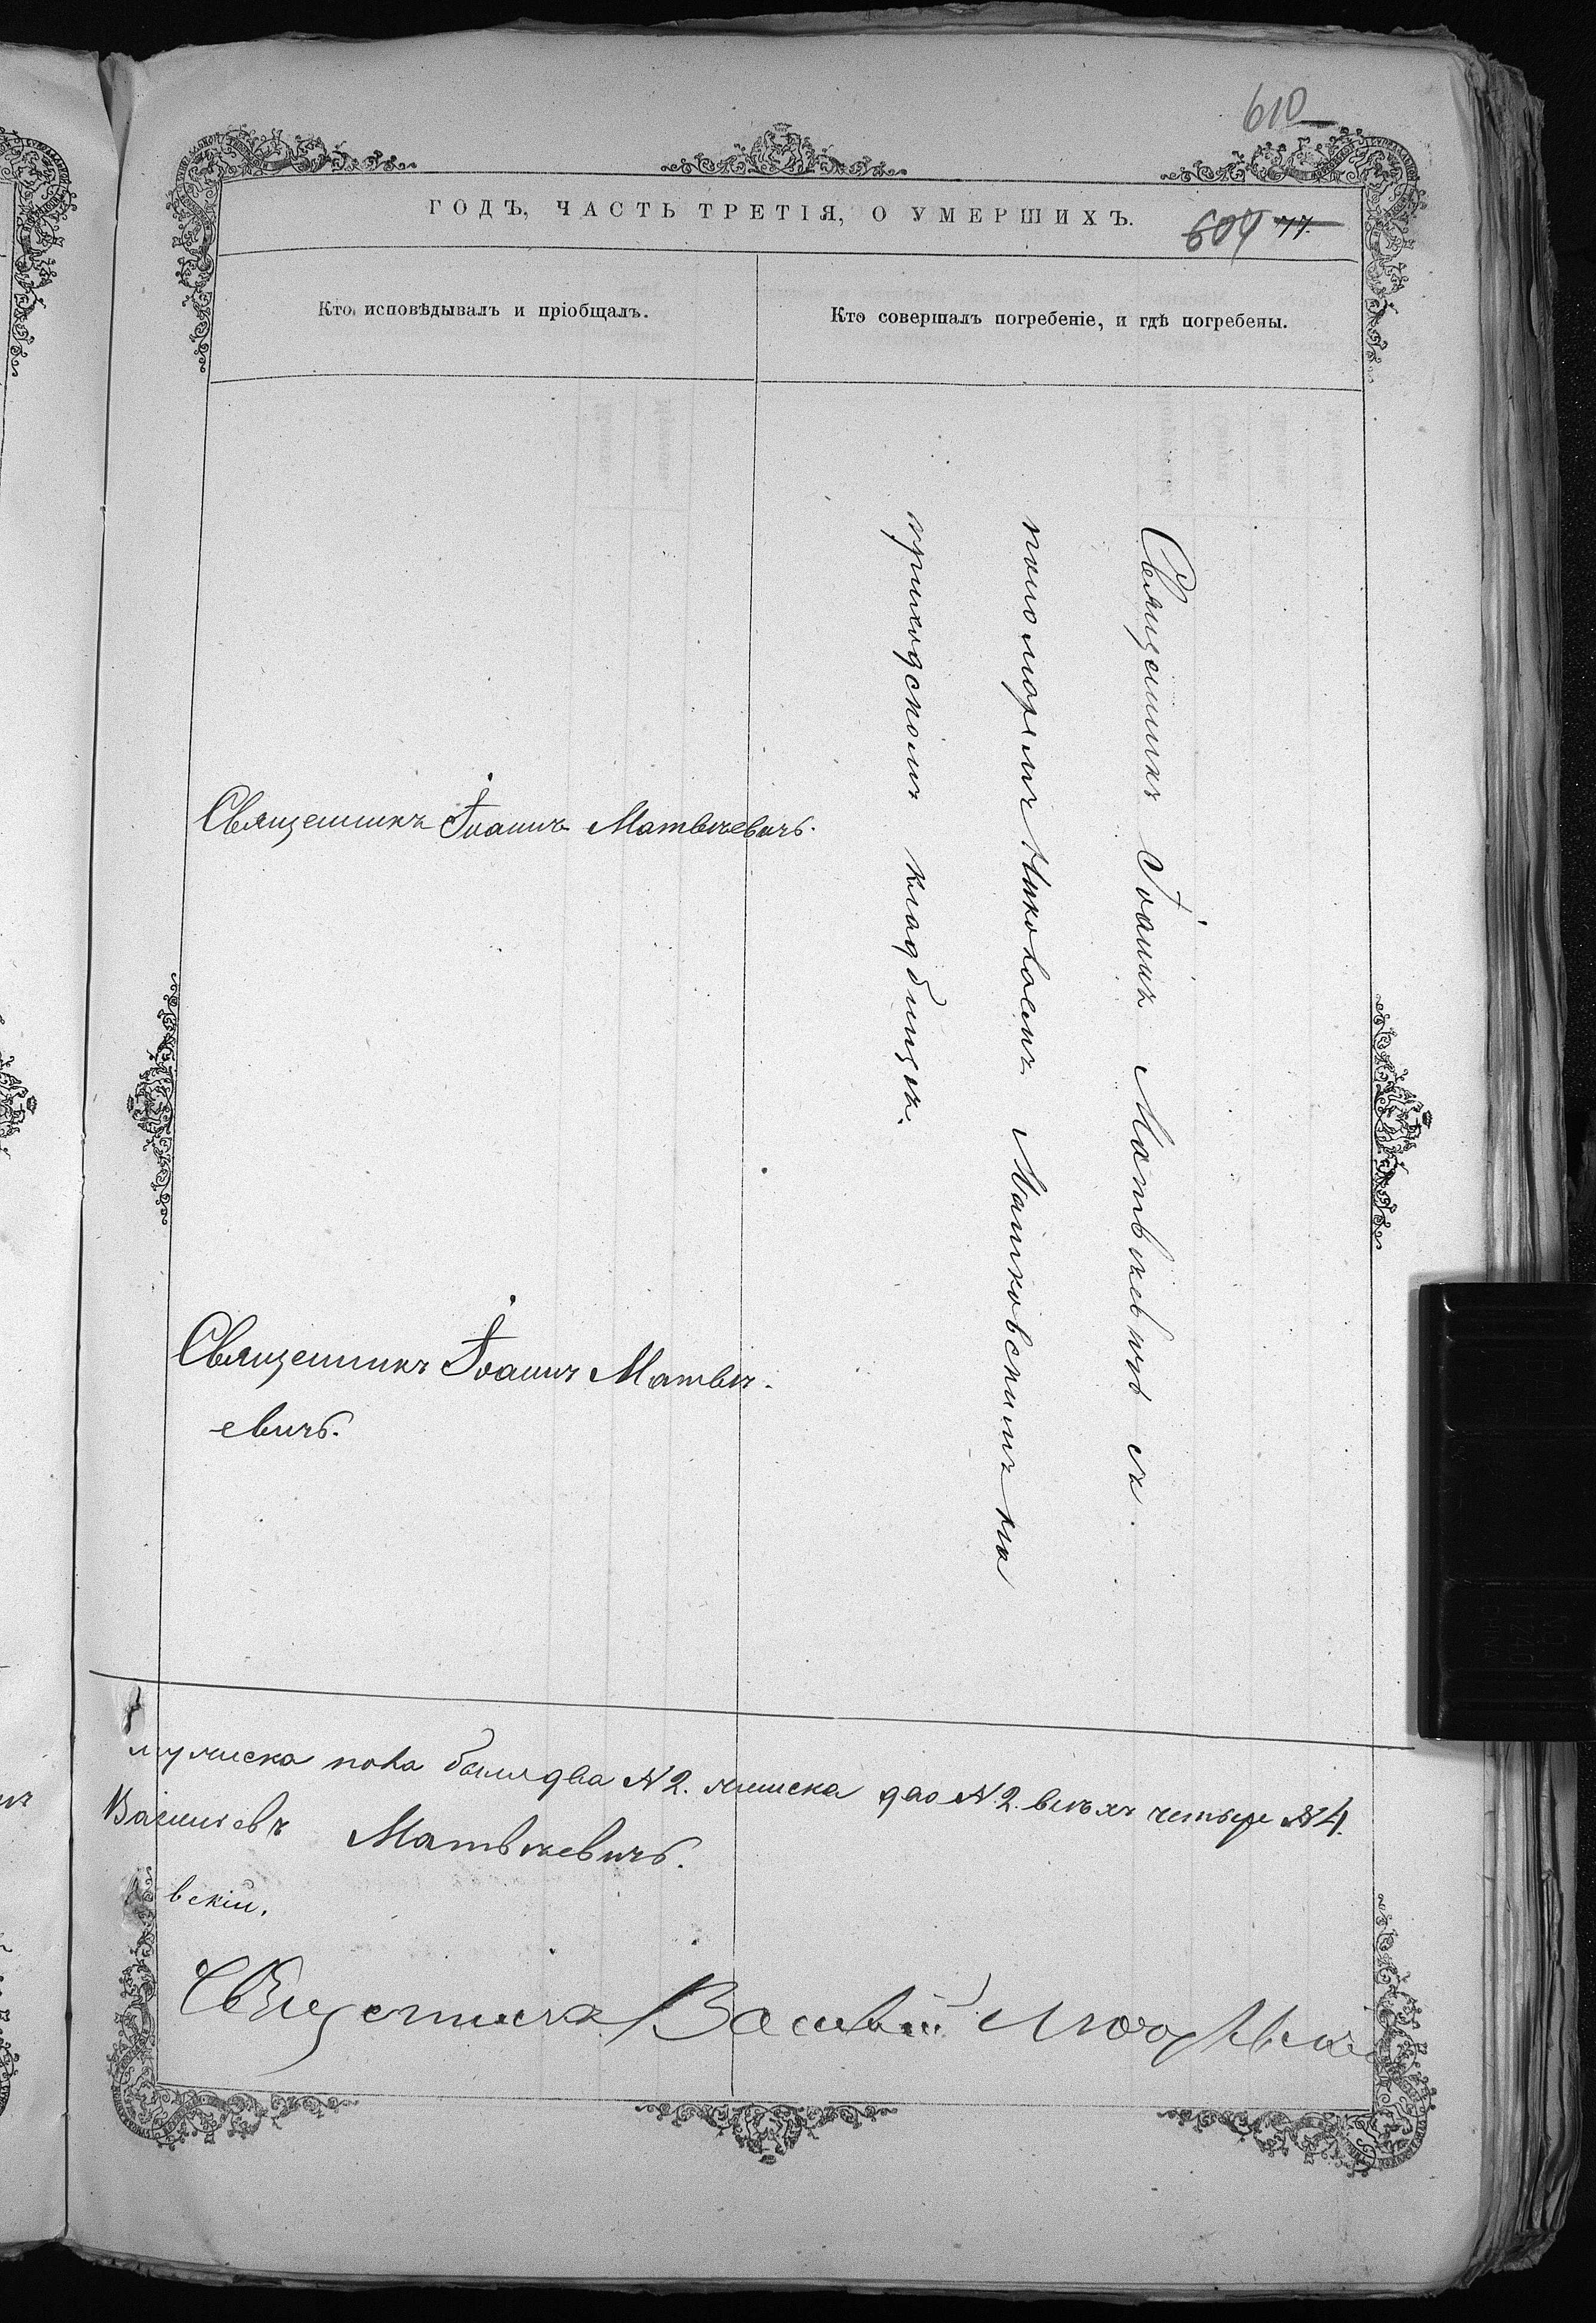 610
ГОДЪ, ЧАСТЬ ТРЕТІЯ, О УМЕРШИХЪ.
609 77.
Кто исповѣдывалъ и пріобщалъ.
Кто совершалъ погребеніе, и гдѣ погребены.
Священникъ Іоаннъ Матвѣевичъ.
Священникъ Іоаннъ Матвѣ-
евичъ.
Священникъ Іоаннъ Матвѣевичъ съ
пономоремъ Николаемъ Матковскимъ на
приходскомъ кладбищѣ.
мужеска пола было два №2. женска два №2. всѣхъ четыре №4.
Матвѣевичъ.
вскій.
Священникъ Василій